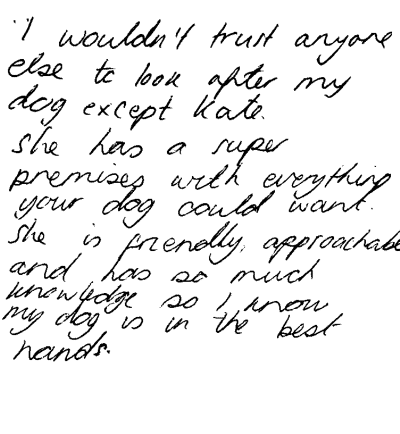 "I wouldn't trust anyone
else to look after my
dog except Kate.
She has a super
premises with everything
your dog could want.
She is friendly, approachable
and has so much
knowledge so I know
my dog is in the best
hands.